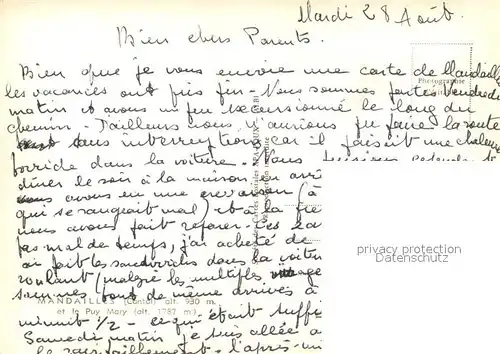 Mardi 28 Août.
Bien chers Parents.
Bien que je vous envoie une carte de Mandailles
les vacances ont pris fin. Nous sommes partis Vendredi
matin et avons un peu excursionné le long du
chemin. D'ailleurs nous n'aurions pu faire la route
sans interruptions car il faisait une chaleur
torride dans la voiture. Nous
dîner le soir à la maison
nous avons eu une crevaison (à
qui se rangeait mal) et à la fin
nous avons fait
pas mal de temps, j'ai acheté de
ai fait les sandwichs dans la voiture
roulant (malgré les multiples virages
sommes tout de même arrivés à
minuit 1/2 - ce qui était suffi
Samedi matin je suis allée a
le ravitaillement. L'après-mi
MANDAILLES (Cantal) alt. 930 m.
et le Puy Mary (alt. 1787 m.)
Photographie
privacy protection
Datenschutz